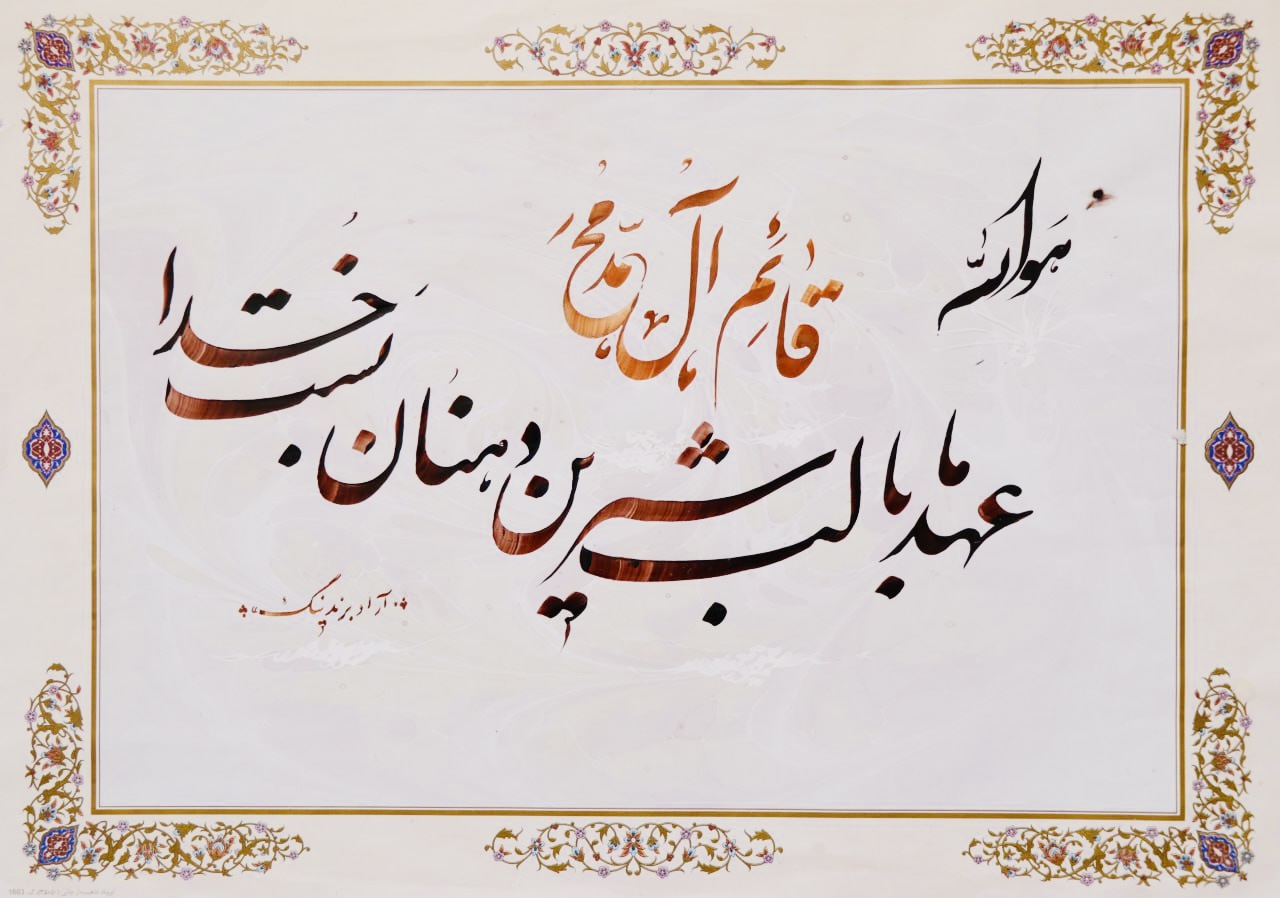 هوالله
قائم آل محمد
عهد ما با لب شیرین دهنان بست خدا
آزاد برند پنگ